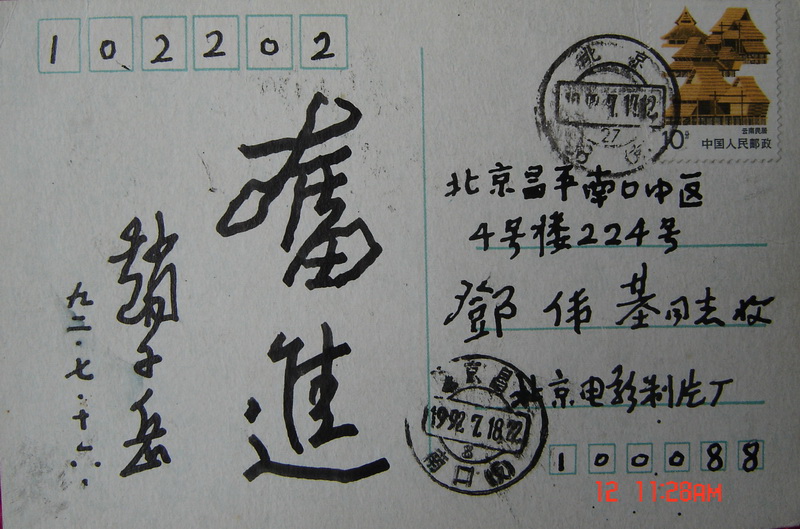 102202
北京
1992.7.17.12
27
云南民居
10分
中国人民邮政
北京昌平南口中区
4号楼224号
鄧伟基同志收
北京电影制片厂
100088
奮進
趙子岳
九二·七·十六
北京昌
1992.7.18.22
8
南口
12 11:28AM